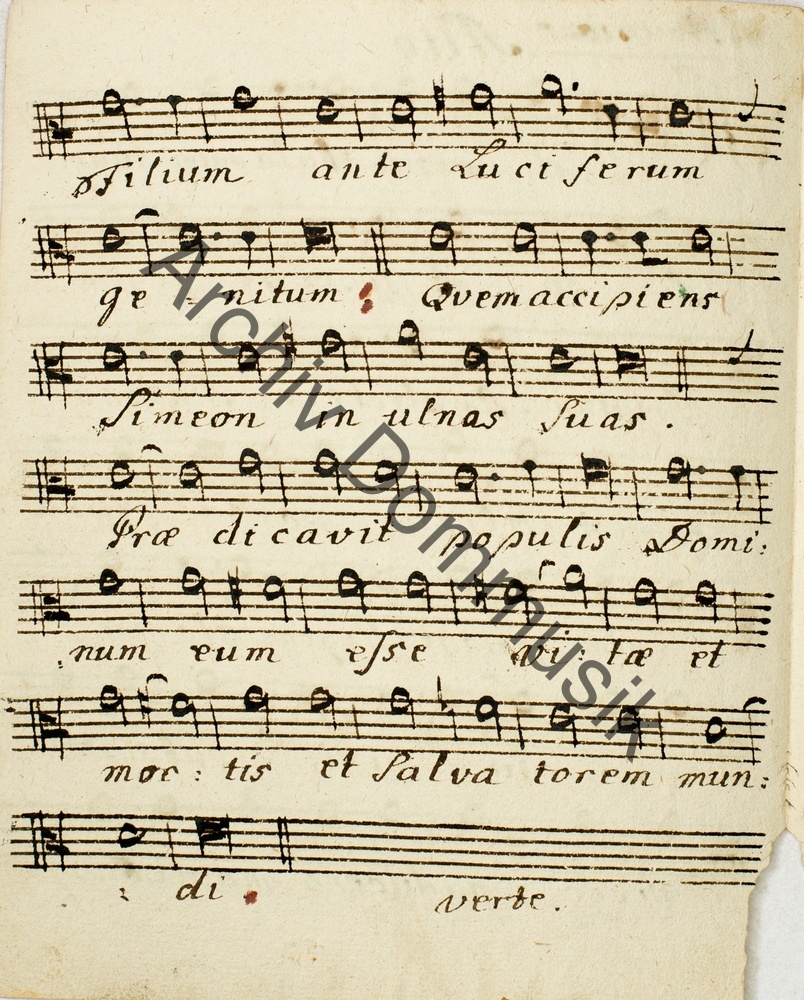 Filium ante Luciferum
ge - nitum : Quem accipiens
Simeon in ulnas Suas .
Præ dicavit populis Domi:
:num eum esse vi: tæ et
mor: tis et Salva torem mun:
: di . verte.
Archiv Dommusik